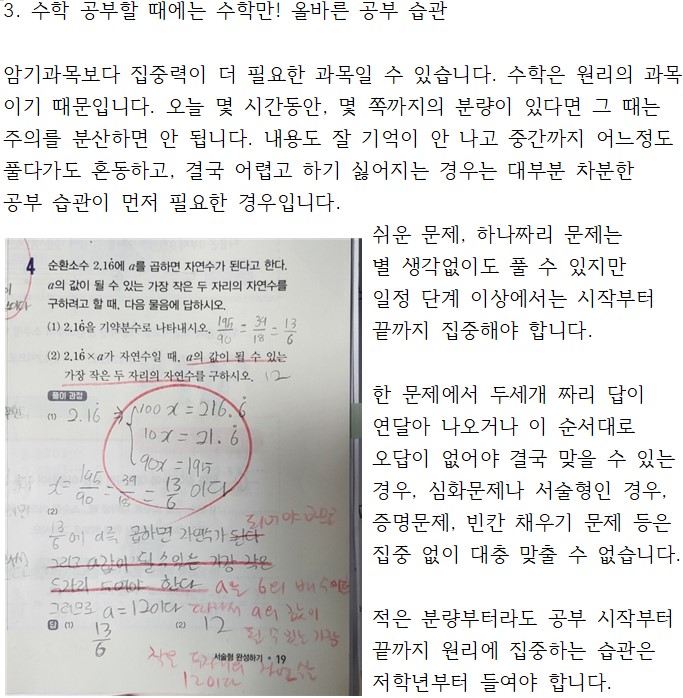 3. 수학 공부할 때에는 수학만! 올바른 공부 습관
암기과목보다 집중력이 더 필요한 과목일 수 있습니다. 수학은 원리의 과목
이기 때문입니다. 오늘 몇 시간동안, 몇 쪽까지의 분량이 있다면 그 때는
주의를 분산하면 안 됩니다. 내용도 잘 기억이 안 나고 중간까지 어느정도
풀다가도 혼동하고, 결국 어렵고 하기 싫어지는 경우는 대부분 차분한
공부 습관이 먼저 필요한 경우입니다.
쉬운 문제, 하나짜리 문제는
별 생각없이도 풀 수 있지만
일정 단계 이상에서는 시작부터
끝까지 집중해야 합니다.
한 문제에서 두세개 짜리 답이
연달아 나오거나 이 순서대로
오답이 없어야 결국 맞을 수 있는
경우, 심화문제나 서술형인 경우,
증명문제, 빈칸 채우기 문제 등은
집중 없이 대충 맞출 수 없습니다.
적은 분량부터라도 공부 시작부터
끝까지 원리에 집중하는 습관은
저학년부터 들여야 합니다.
4 순환소수 2.16̇에 a를 곱하면 자연수가 된다고 한다.
a의 값이 될 수 있는 가장 작은 두 자리의 자연수를
구하려고 할 때, 다음 물음에 답하시오.
(1) 2.16̇을 기약분수로 나타내시오. 195/90 = 39/18 = 13/6
(2) 2.16̇×a가 자연수일 때, a의 값이 될 수 있는
가장 작은 두 자리의 자연수를 구하시오. 12
풀이 과정
(1) 2.16̇ ⇒ 100x = 216.6̇
10x = 21.6̇
90x = 195
x = 195/90 = 39/18 = 13/6 이다
(2)
되어야 하므로
13/6 에 a를 곱하면 자연수가 된다
그리고 a값이 될 수 있는 가장 작은
두자리 수여야 한다 a는 6의 배수이다
그러므로 a = 12이다 따라서 a의 값이
답 (1) 13/6 (2) 12 될 수 있는 가장
작은 두자리의 자연수는
12이다
서술형 완성하기 • 19